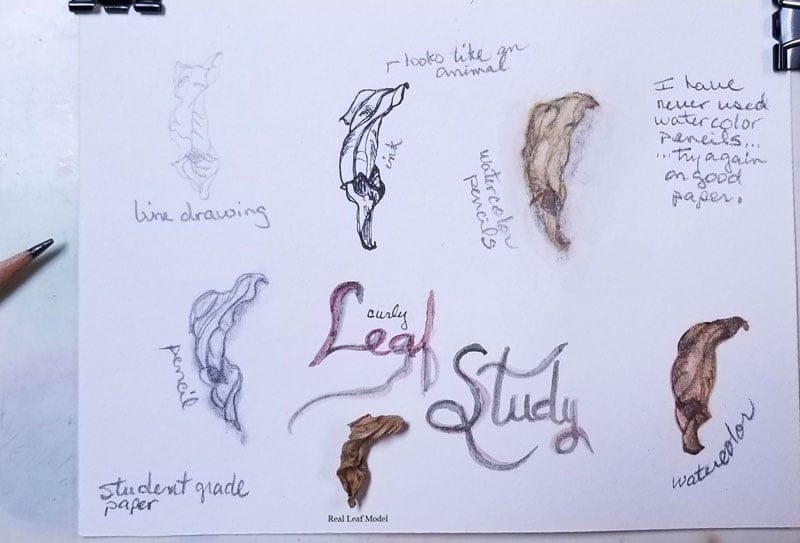 looks like an
animal
line drawing
ink
watercolor
pencils
I have
never used
watercolor
pencils...
...try again
on good
paper.
pencil
curly
Leaf
Study
watercolor
student grade
paper
Real Leaf Model